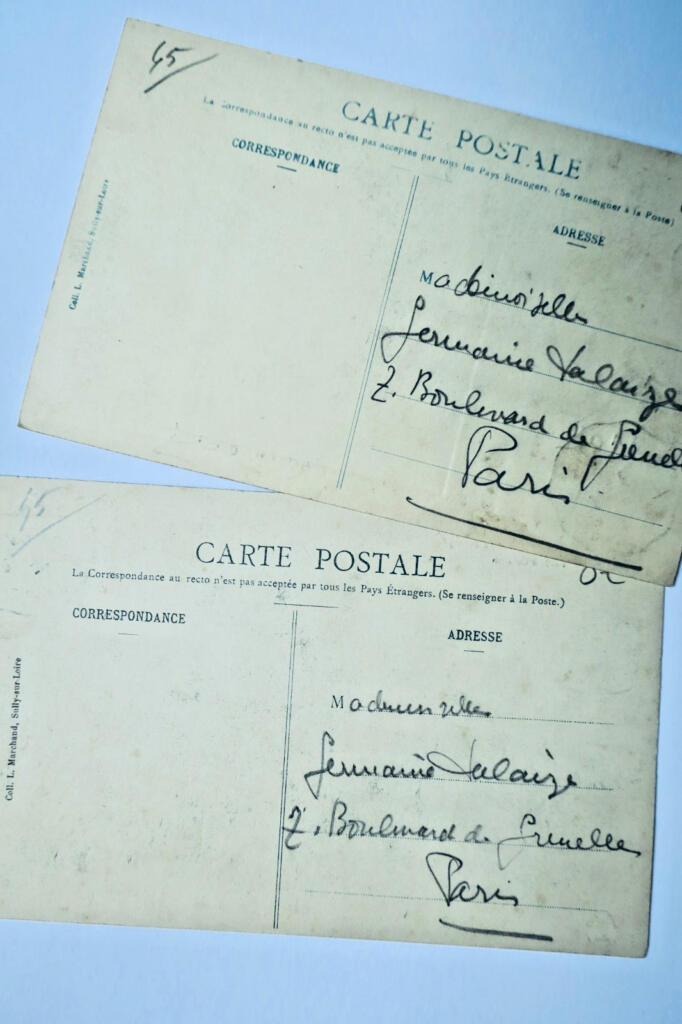 45
CARTE POSTALE
La Correspondance au recto n'est pas acceptée par tous les Pays Étrangers. (Se renseigner à la Poste)
CORRESPONDANCE
ADRESSE
Coll. L. Marchand, Sully-sur-Loire
Mademoiselle
Germaine Lalaize
7. Boulevard de Grenell
Paris
45
CARTE POSTALE
La Correspondance au recto n'est pas acceptée par tous les Pays Étrangers. (Se renseigner à la Poste.)
CORRESPONDANCE
ADRESSE
Coll. L. Marchand, Sully-sur-Loire
Mademoiselle
Germaine Lalaize
7. Boulevard de Grenelle
Paris